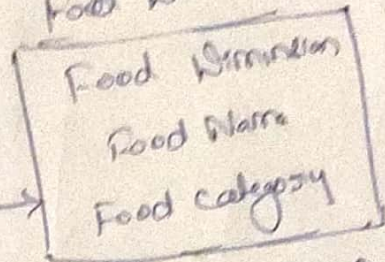 Food
Food Dimension
Food Name
Food Category